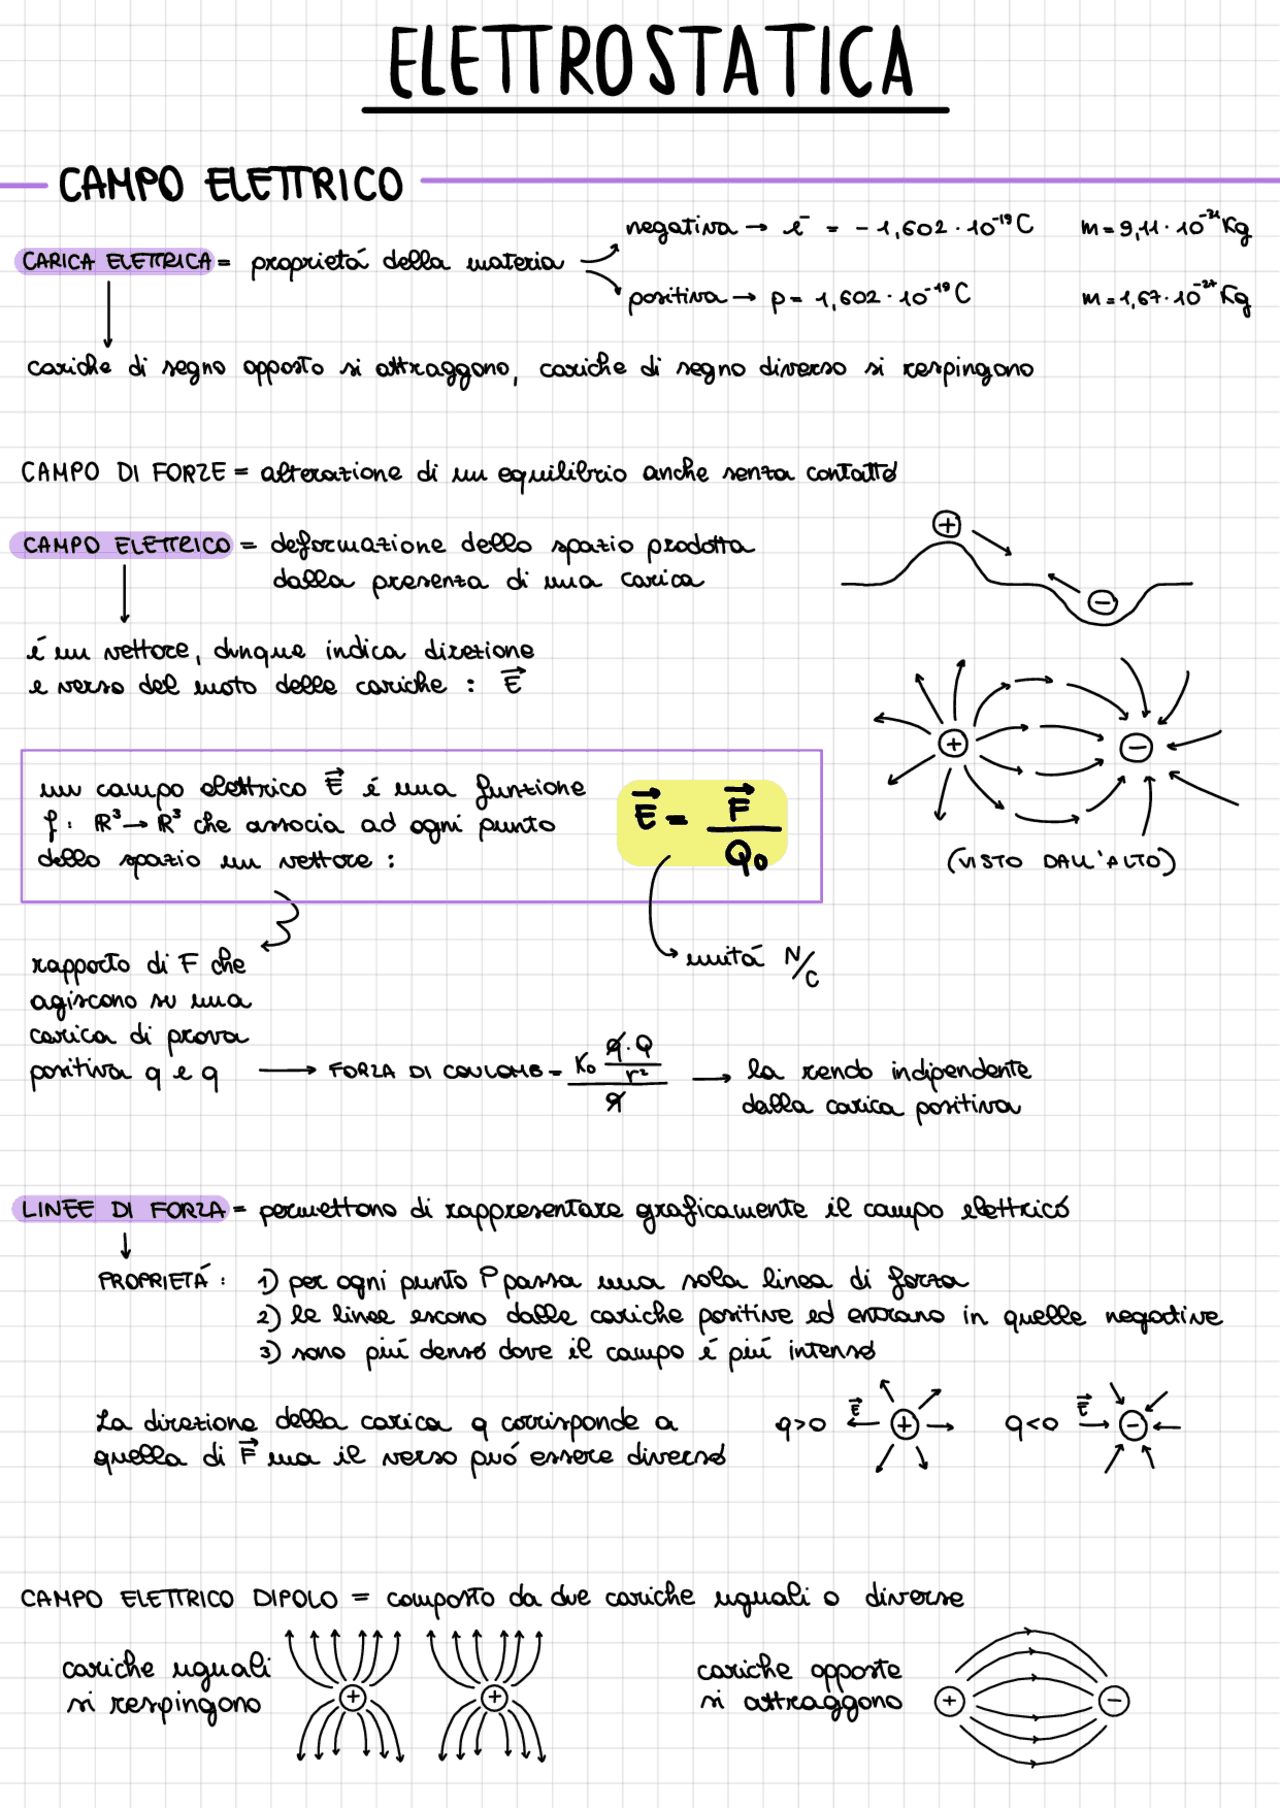 ELETTROSTATICA
CAMPO ELETTRICO
negativa → e⁻ = - 1,602 · 10⁻¹⁹ C m = 9,11 · 10⁻³¹ Kg
CARICA ELETTRICA = proprietá della materia
positiva → p = 1,602 · 10⁻¹⁹ C m = 1,67 · 10⁻²⁷ Kg
cariche di segno opposto si attraggono, cariche di segno diverso si respingono
CAMPO DI FORZE = alterazione di un equilibrio anche senza contatto
+
CAMPO ELETTRICO = deformazione dello spazio prodotta
dalla presenza di una carica
-
é un vettore, dunque indica direzione
e verso del moto delle cariche : E⃗
+ -
un campo elettrico E⃗ é una funzione
f: ℝ³ → ℝ³ che associa ad ogni punto
dello spazio un vettore :
E⃗ = F⃗ / Q₀
(VISTO DALL'ALTO)
unitá N/C
rapporto di F che
agiscono su una
carica di prova
positiva q e q → FORZA DI COULOMB = K₀ q · Q / r² / q → la rendo indipendente
dalla carica positiva
LINEE DI FORZA = permettono di rappresentare graficamente il campo elettrico
PROPRIETÁ : 1) per ogni punto P passa una sola linea di forza
2) le linee escono dalle cariche positive ed entrano in quelle negative
3) sono piú dense dove il campo é piú intenso
La direzione della carica q corrisponde a
quella di F⃗ ma il verso puó essere diverso
q>0 E⃗ + q<0 E⃗ -
CAMPO ELETTRICO DIPOLO = composto da due cariche uguali o diverse
cariche uguali
si respingono
+ +
cariche opposte
si attraggono
+ -